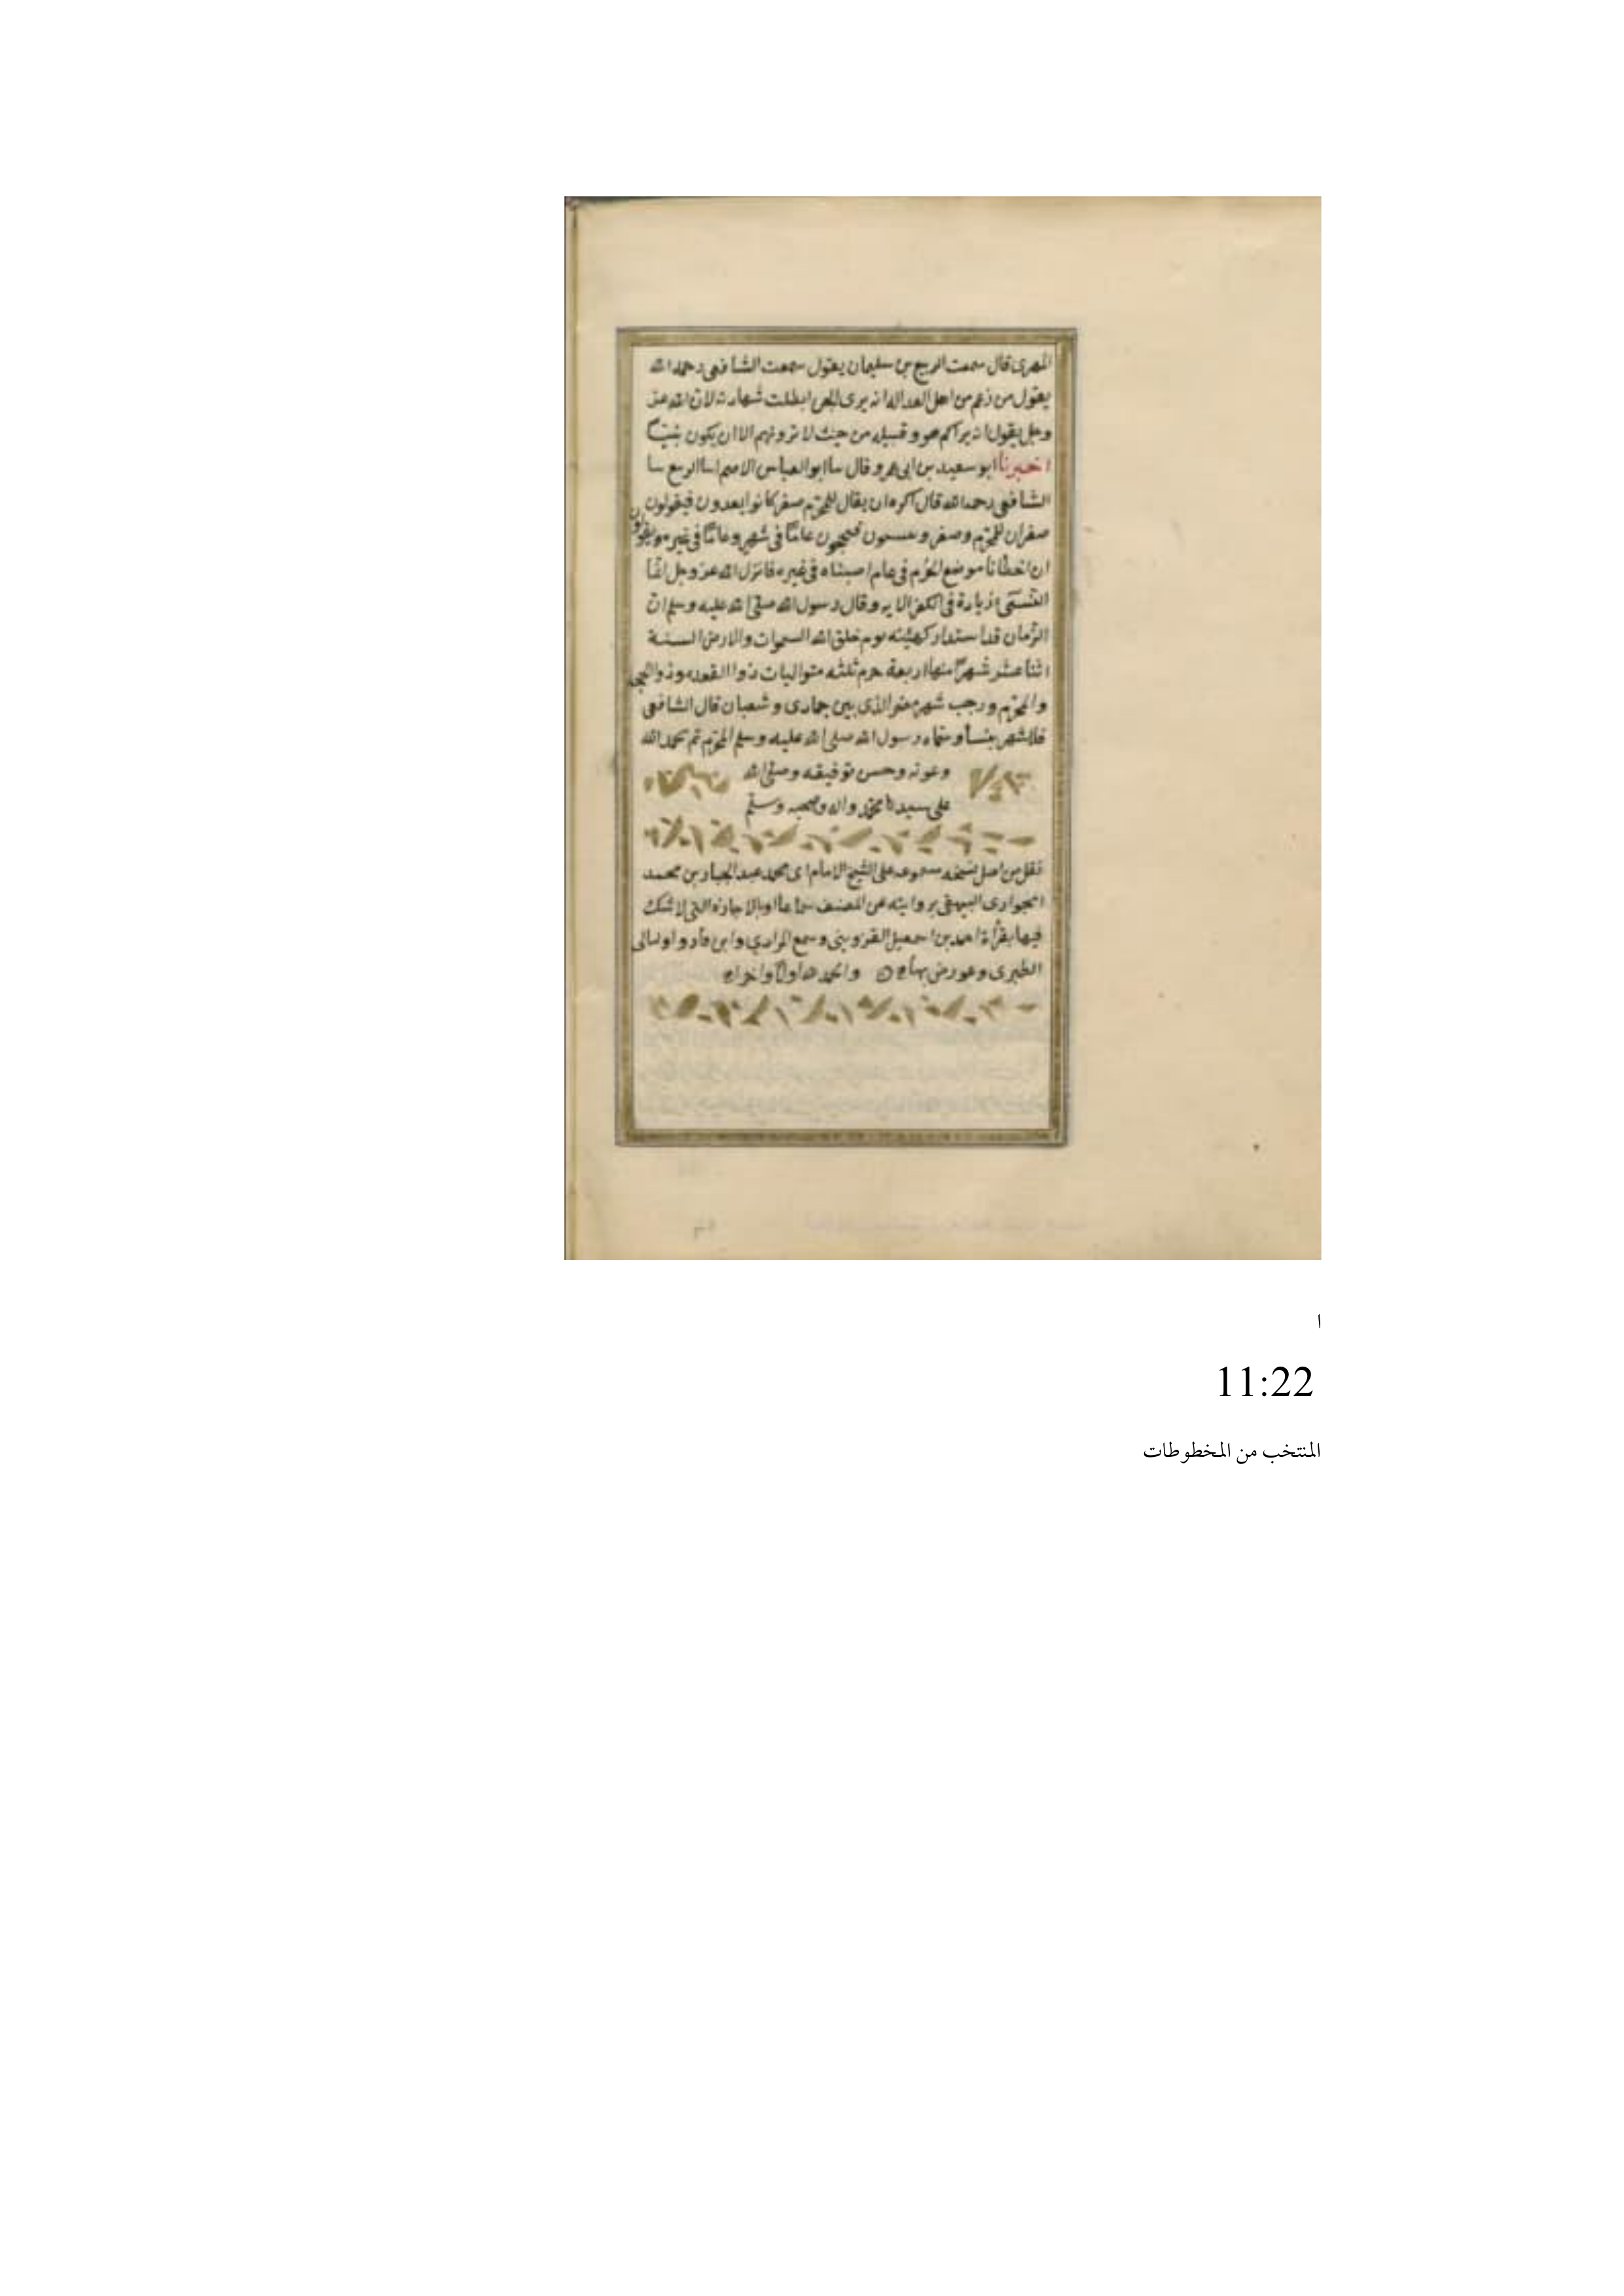 المصرى قال سمعت الربيع بن سليمان يقول سمعت الشافعى رحمه الله
يقول من زعم من اهل العداله انه يرى الجن ابطلت شهادته لان الله عز
وجل يقول انه يراكم هو وقبيله من حيث لا ترونهم الا ان يكون نبيّا
اخبرنا ابو سعيد بن ابى عمرو قال سا ابو العباس الاصم اسا الربيع سا
الشافعى رحمه الله قال اكره ان يقال للمحرّم صفر كانوا يعدون فيقولون
صفران للمحرّم وصفر و فيحجون عامًا فى شهر وعامًا فى غيره ويقولون
ان اخطانا موضع المحرّم فى عام اصبناه فى غيره فانزل الله عز وجل انما
النسئ زيادة فى الكفر الايه وقال رسول الله صلى الله عليه وسلم ان
الزمان قد استدار كهيئته يوم خلق الله السموات والارض السنة
اثنا عشر شهرًا منها اربعة حرم ثلثه متواليات ذوا القعده وذوالحجه
والمحرّم ورجب شهر مضر الذى بين جمادى وشعبان قال الشافعى
فلا شهر ينسأ وسمّاه رسول الله صلى الله عليه وسلم المحرّم تم بحمد الله
وعونه وحسن توفيقه وصلى الله
على سيدنا محمّد واله وصحبه وسلّم
نقل من اصل نسخه مسموعه على الشيخ الامام ابى محمد عبد الجبار بن محمد
الخوارى البيهقى بروايته عن المصنف سماعا او بالاجازه التى لا شك
فيها بقرأة احمد بن اسمعيل القزوينى وسمع المرادي وابن
الطبرى وعورض بها والحمد لله اولًا واخرا
ا
11:22
المنتخب من المخطوطات